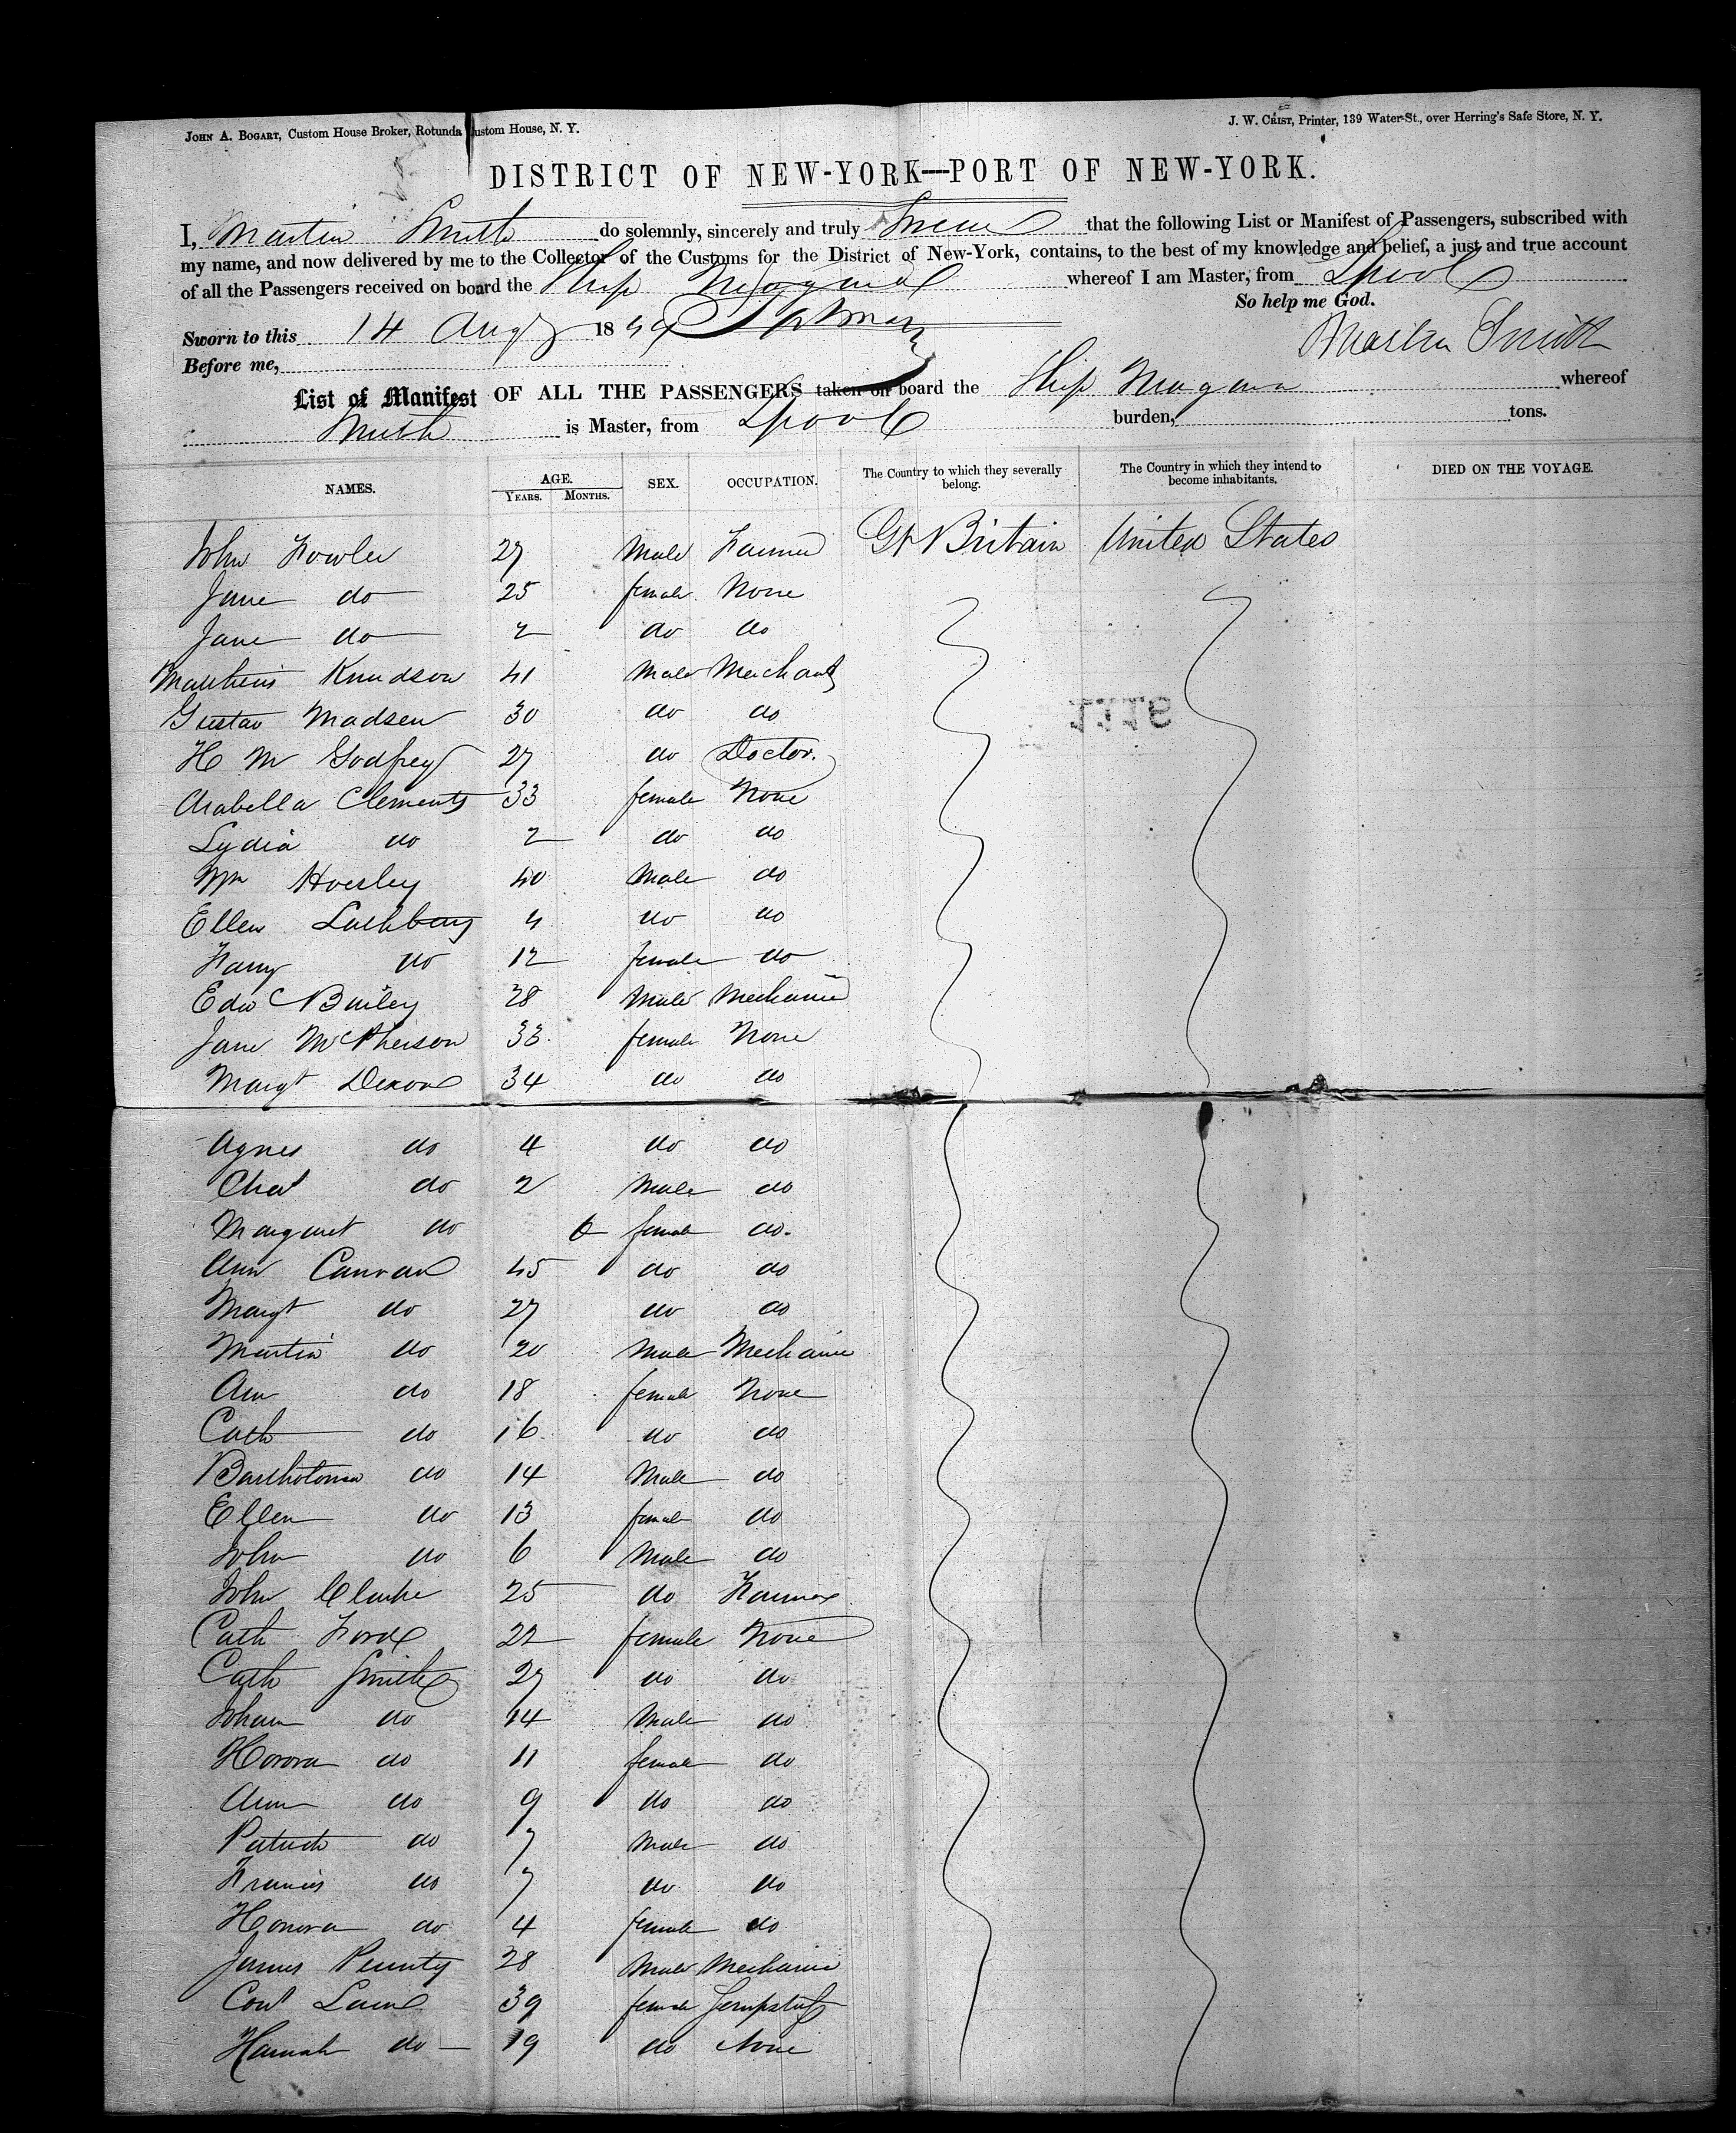 JOHN A. BOGART, Custom House Broker, Rotunda Custom House, N. Y.
J. W. CRIST, Printer, 139 Water-St., over Herring's Safe Store, N. Y.
DISTRICT OF NEW-YORK—PORT OF NEW-YORK.
I, Martin Smith do solemnly, sincerely and truly Swear that the following List or Manifest of Passengers, subscribed with
my name, and now delivered by me to the Collector of the Customs for the District of New-York, contains, to the best of my knowledge and belief, a just and true account
of all the Passengers received on board the Ship whereof I am Master, from Lpool
So help me God.
Sworn to this 14 Aug 18
Martin Smith
Before me,
List or Manifest OF ALL THE PASSENGERS taken on board the Ship whereof
Smith is Master, from Lpool burden, tons.
NAMES. AGE. YEARS. MONTHS. SEX. OCCUPATION. The Country to which they severally belong. The Country in which they intend to become inhabitants. DIED ON THE VOYAGE.
John Fowler 27 Male Farmer Gt Britain United States
Jane do 25 female None
Jane do 2 do do
Matthew Knudson 41 Male Merchant
Gustav Madsen 30 do do
H M Godfrey 27 do Doctor.
Arabella Clements 33 female None
Lydia do 2 do do
Wm Hoesley 40 Male do
Ellen 4 do do
Fanny do 12 female do
Edw Bailey 28 Male Mechanic
Jane McPherson 33 female None
Margt Dixon 34 do do
Agnes do 4 do do
Chas do 2 Male do
Margaret do 6 female do.
Ann Canvan 45 do do
Margt do 27 do do
Martin do 20 Male Mechanic
Ann do 18 female None
Cath do 16 do do
Bartholomew do 14 Male do
Ellen do 13 female do
John do 6 Male do
John Clarke 25 do Farmer
Cath Ford 22 female None
Cath Smith 27 do do
Johan do 14 Male do
Honora do 11 female do
Ann do 9 do do
Patrick do 7 Male do
Francis do 7 do do
Honora do 4 female do
James 28 Male Mechanic
39 female
Hannah do 19 do None